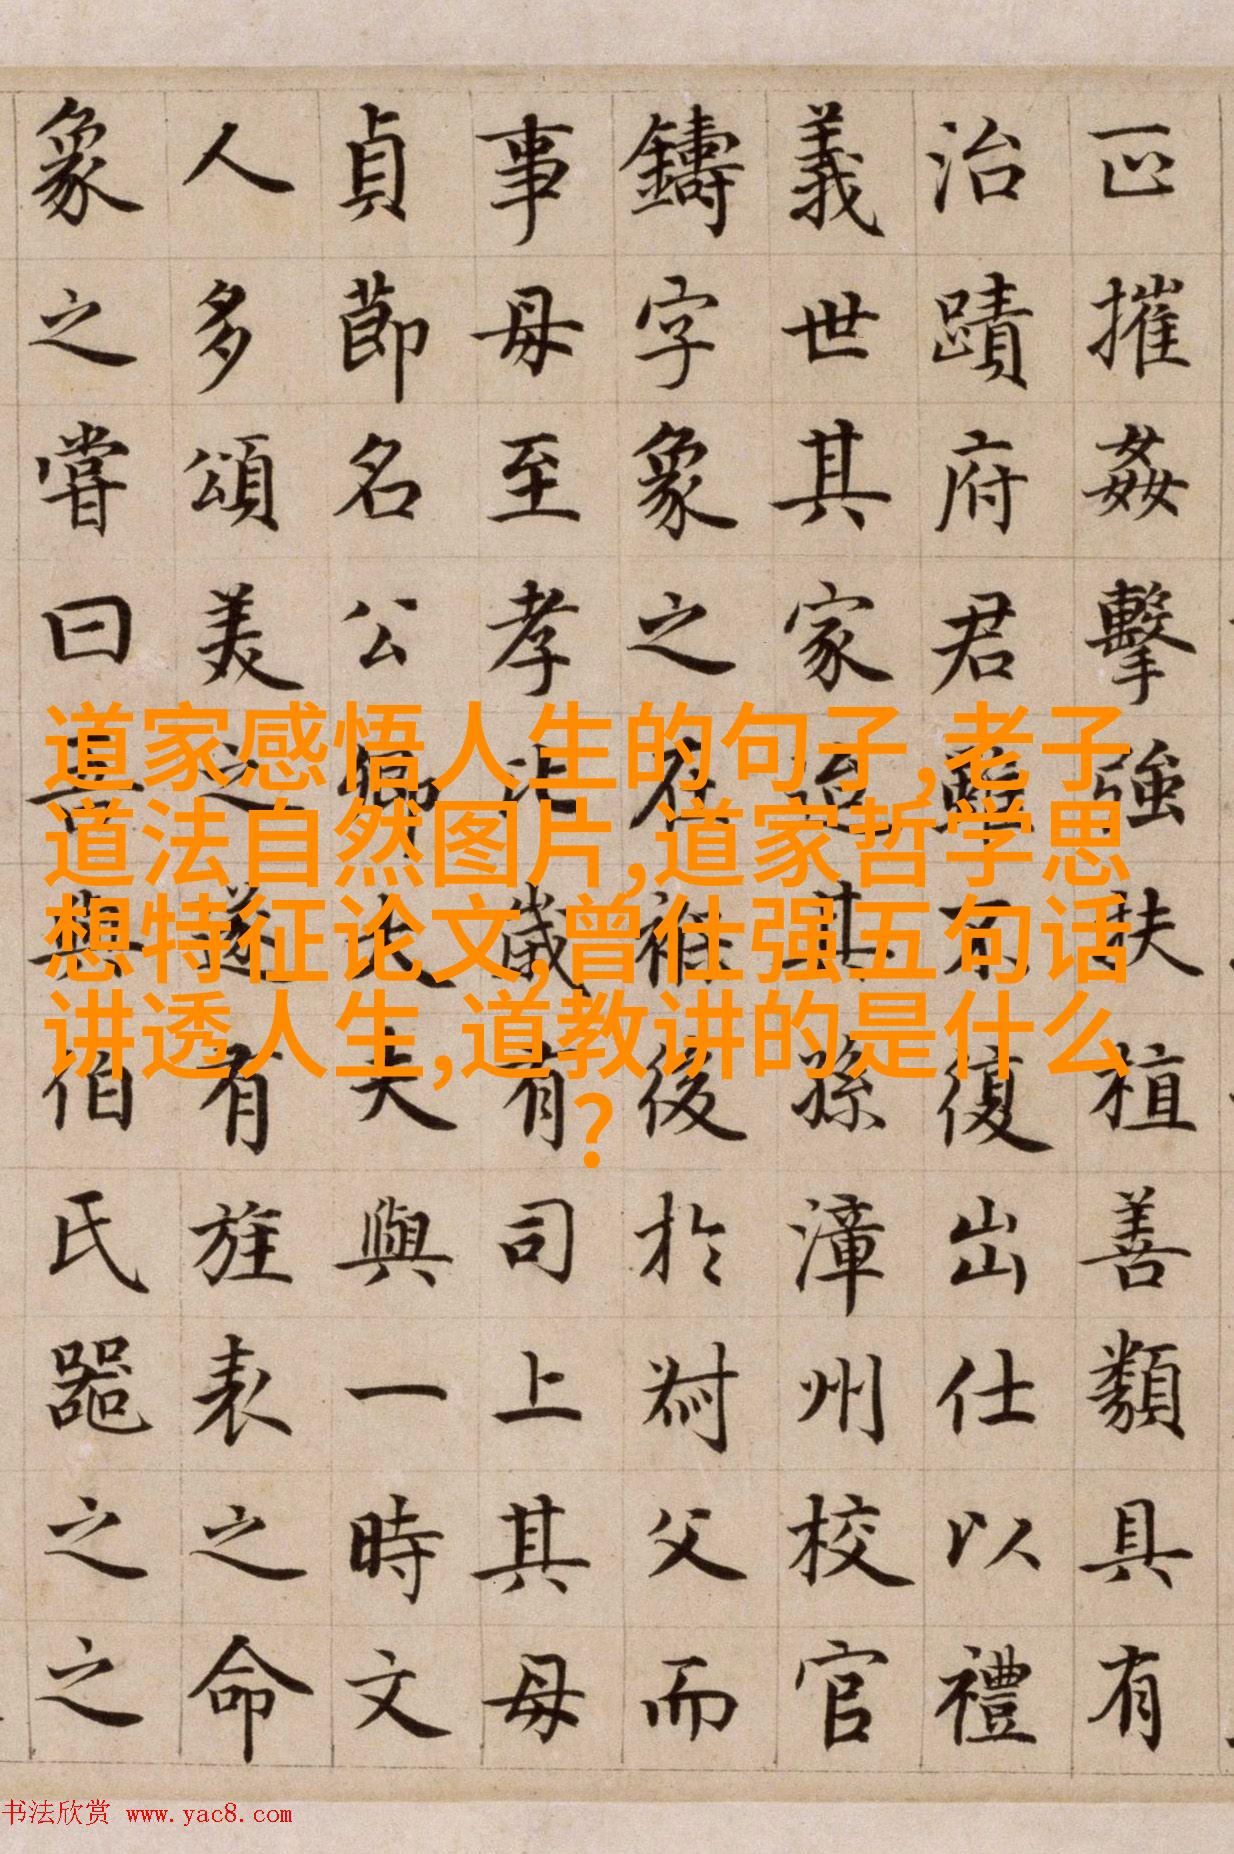 摧姦擊強扶植善類具有
治蹟府君雖不復出仕以禮
義世其家詒其孫漳州校官
鑄字象之在後於父而
事母至孝比歲有司上其母
貞節名公卿大夫與一時文
人多頌美之遂有旌表之命
象之嘗曰吾與伯氏器之之
道家感悟人生的句子,老子
道法自然图片,道家哲学思
想特征论文,曾仕强五句话
讲透人生,道教讲的是什么
?
书法欣赏 www.yac8.com